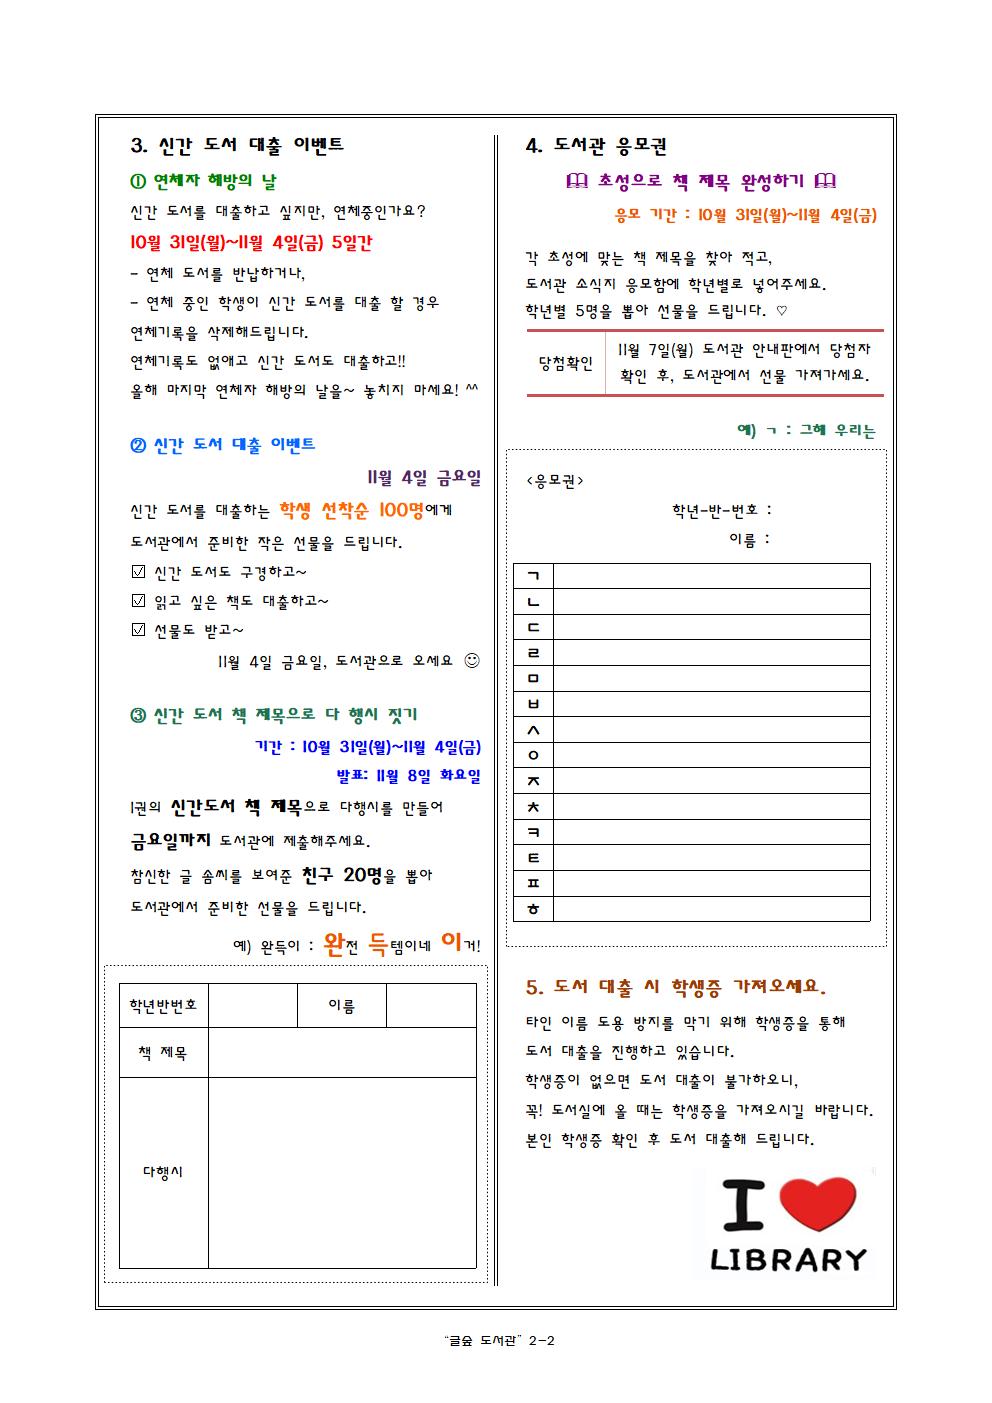 3. 신간 도서 대출 이벤트
① 연체자 해방의 날
신간 도서를 대출하고 싶지만, 연체중인가요?
10월 31일(월)~11월 4일(금) 5일간
- 연체 도서를 반납하거나,
- 연체 중인 학생이 신간 도서를 대출 할 경우
연체기록을 삭제해드립니다.
연체기록도 없애고 신간 도서도 대출하고!!
올해 마지막 연체자 해방의 날을~ 놓치지 마세요! ^^
② 신간 도서 대출 이벤트
11월 4일 금요일
신간 도서를 대출하는 학생 선착순 100명에게
도서관에서 준비한 작은 선물을 드립니다.
☑ 신간 도서도 구경하고~
☑ 읽고 싶은 책도 대출하고~
☑ 선물도 받고~
11월 4일 금요일, 도서관으로 오세요 ☺
③ 신간 도서 책 제목으로 다 행시 짓기
기간 : 10월 31일(월)~11월 4일(금)
발표: 11월 8일 화요일
1권의 신간도서 책 제목으로 다행시를 만들어
금요일까지 도서관에 제출해주세요.
참신한 글 솜씨를 보여준 친구 20명을 뽑아
도서관에서 준비한 선물을 드립니다.
예) 완득이 : 완전 득템이네 이거!
학년반번호 이름
책 제목
다행시
4. 도서관 응모권
🕮 초성으로 책 제목 완성하기 🕮
응모 기간 : 10월 31일(월)~11월 4일(금)
각 초성에 맞는 책 제목을 찾아 적고,
도서관 소식지 응모함에 학년별로 넣어주세요.
학년별 5명을 뽑아 선물을 드립니다. ♡
당첨확인
11월 7일(월) 도서관 안내판에서 당첨자
확인 후, 도서관에서 선물 가져가세요.
예) ㄱ : 그해 우리는
<응모권>
학년-반-번호 :
이름 :
ㄱ
ㄴ
ㄷ
ㄹ
ㅁ
ㅂ
ㅅ
ㅇ
ㅈ
ㅊ
ㅋ
ㅌ
ㅍ
ㅎ
5. 도서 대출 시 학생증 가져오세요.
타인 이름 도용 방지를 막기 위해 학생증을 통해
도서 대출을 진행하고 있습니다.
학생증이 없으면 도서 대출이 불가하오니,
꼭! 도서실에 올 때는 학생증을 가져오시길 바랍니다.
본인 학생증 확인 후 도서 대출해 드립니다.
I ♥
LIBRARY
“글숲 도서관” 2-2